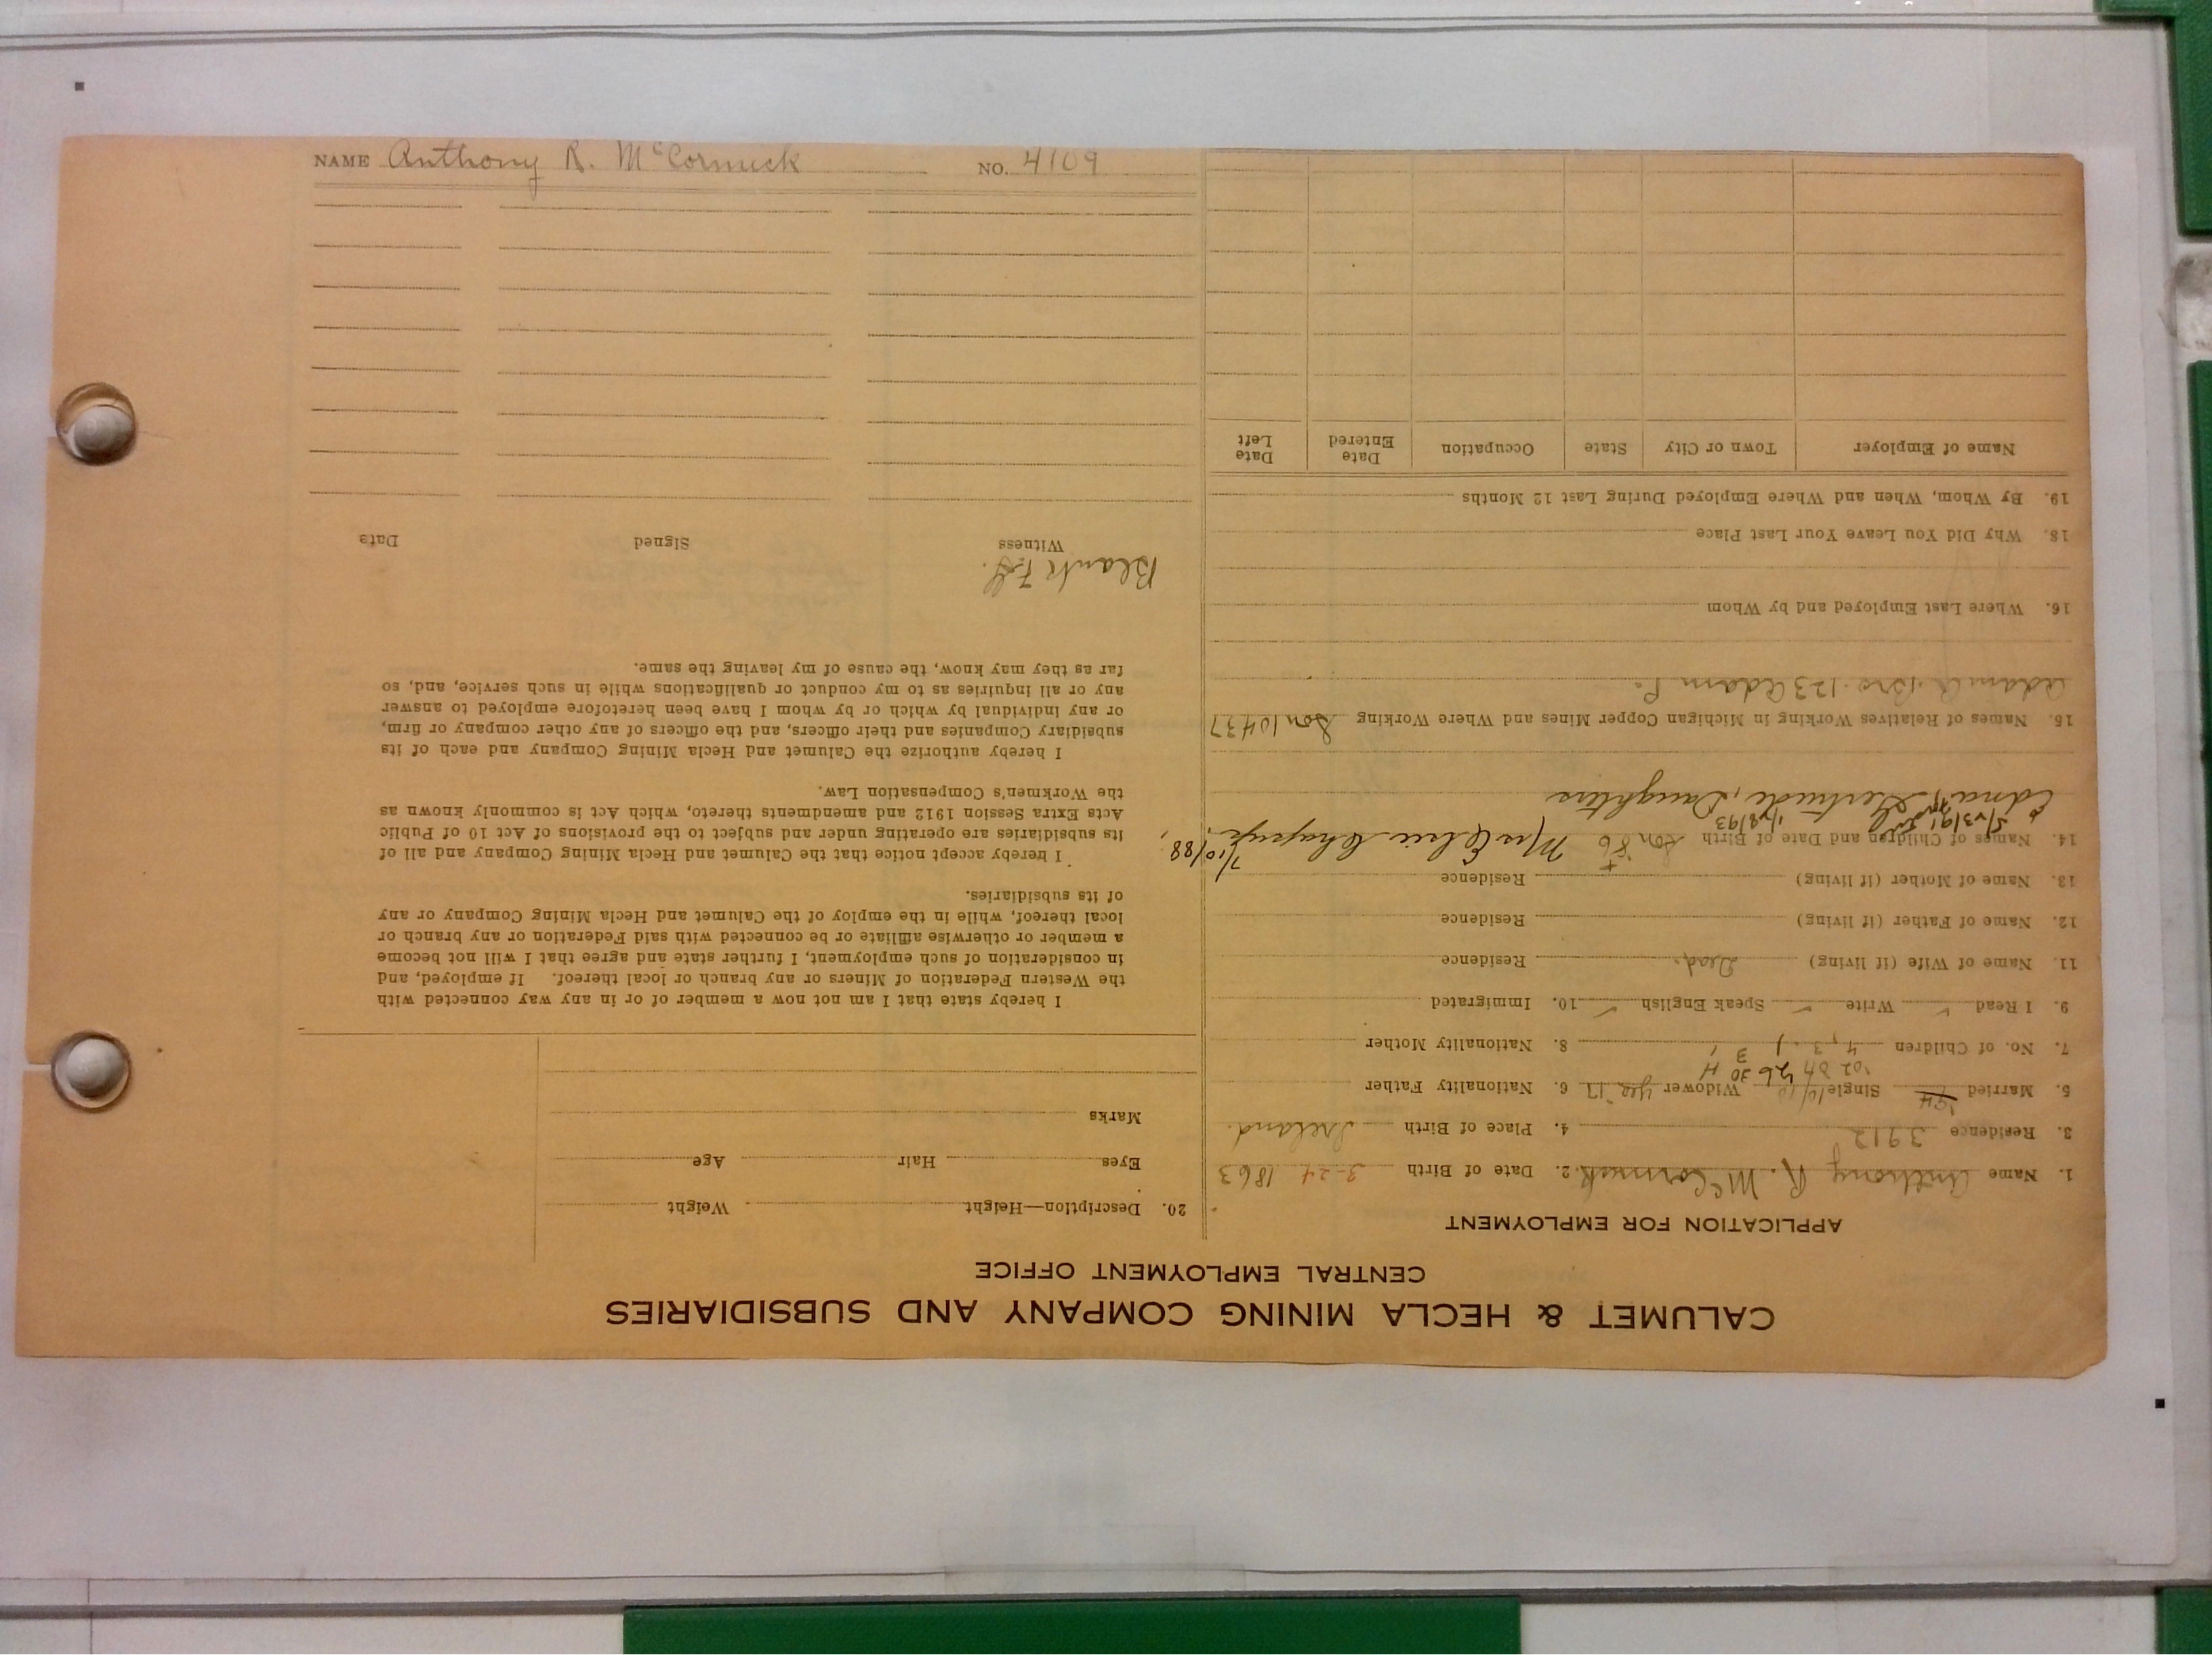 NAME Anthony R. McCormick NO. 4109
CALUMET & HECLA MINING COMPANY AND SUBSIDIARIES
CENTRAL EMPLOYMENT OFFICE
APPLICATION FOR EMPLOYMENT
1. Name Anthony R. McCormick 2. Date of Birth 3-24 1863
3. Residence 3912 4. Place of Birth Ireland.
5. Married '94 Single Widower yes '17 6. Nationality Father
'02 26 30 H
7. No. of Children 4, 3. 1 3 1 8. Nationality Mother
9. I Read ✓ Write ✓ Speak English ✓ 10. Immigrated
11. Name of Wife (if living) Dead. Residence
12. Name of Father (if living) Residence
13. Name of Mother (if living) Residence
14. Names of Children and Date of Birth Son '86 Mrs Elsie 7/10/88,
5/23/91 1/28/93
Edna, Gertrude, Daughters
15. Names of Relatives Working in Michigan Copper Mines and Where Working Son 10437
Adam Bro. 123
16. Where Last Employed and by Whom
18. Why Did You Leave Your Last Place
19. By Whom, When and Where Employed During Last 12 Months
Name of Employer Town or City State Occupation Date Entered Date Left
20. Description—Height Weight
Eyes Hair Age
Marks
I hereby state that I am not now a member of or in any way connected with
the Western Federation of Miners or any branch or local thereof. If employed, and
in consideration of such employment, I further state and agree that I will not become
a member or otherwise affiliate or be connected with said Federation or any branch or
local thereof, while in the employ of the Calumet and Hecla Mining Company or any
of its subsidiaries.
I hereby accept notice that the Calumet and Hecla Mining Company and all of
its subsidiaries are operating under and subject to the provisions of Act 10 of Public
Acts Extra Session 1912 and amendments thereto, which Act is commonly known as
the Workmen's Compensation Law.
I hereby authorize the Calumet and Hecla Mining Company and each of its
subsidiary Companies and their officers, and the officers of any other company or firm,
or any individual by which or by whom I have been heretofore employed to answer
any or all inquiries as to my conduct or qualifications while in such service, and, so
far as they may know, the cause of my leaving the same.
Blank
Witness Signed Date